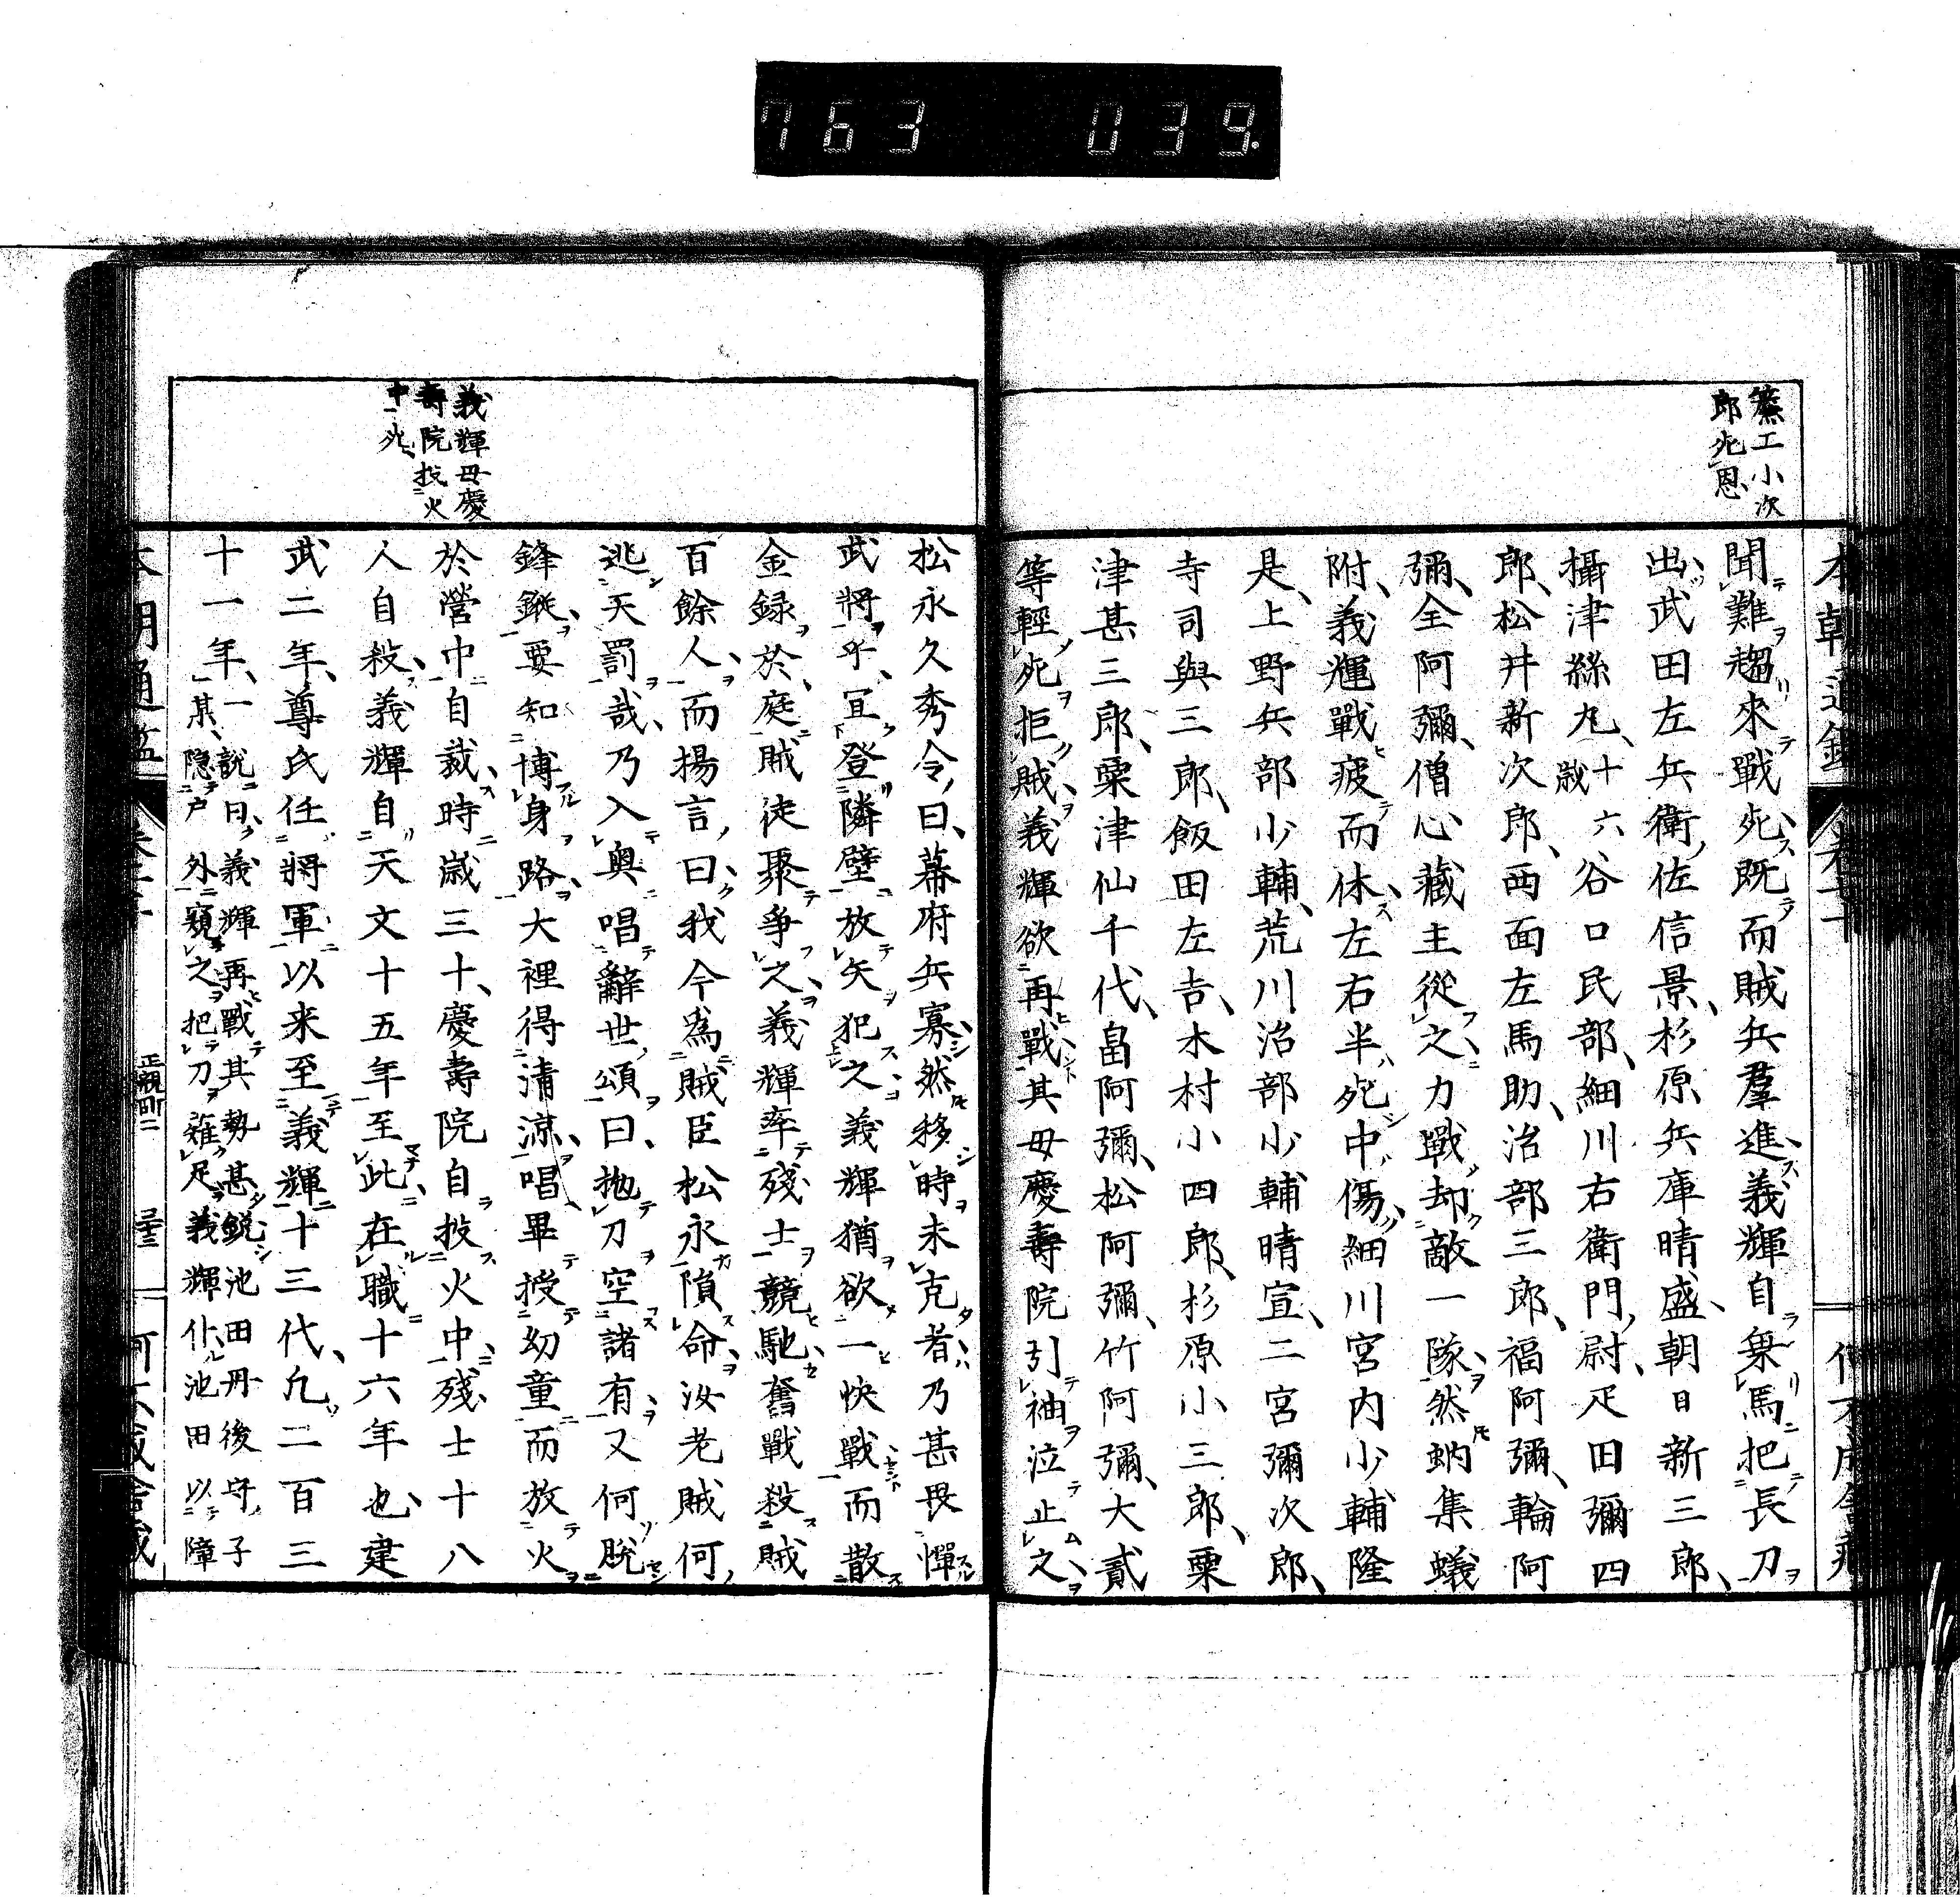 763 039.
簾工小次
郎死恩
聞難趨來戰死既而賊兵羣進義輝自乗馬把長刀
出武田左兵衛佐信景杉原兵庫晴盛朝日新三郎
攝津絲丸十六歳谷口民部細川右衛門尉疋田彌四
郎松井新次郎西面左馬助治部三郎福阿彌輪阿
彌全阿彌僧心藏主從之力戰却敵一隊然蚋集蟻
附義輝戰疲而休左右半死中傷細川宮内少輔隆
是上野兵部少輔荒川治部少輔晴宣二宮彌次郎
寺司與三郎飯田左吉木村小四郎杉原小三郎粟
津甚三郎粟津仙千代畠阿彌松阿彌竹阿彌大貳
等輕死拒賊義輝欲再戰其母慶壽院引袖泣止之
義輝母慶
壽院投火
中死
松永久秀令曰幕府兵寡然移時未克者乃甚畏憚
武將乎宜登隣壁放矢犯之義輝猶欲一快戰而散
金録於庭賊徒聚爭之義輝率残士競馳奮戰殺賊
百餘人而揚言曰我今爲賊臣松永隕命汝老賊何
逃天罰哉乃入奥唱辭世頌曰抛刀空諸有又何脱
鋒鏦要知博身路大裡得清涼唱畢授幼童而放火
於營中自裁時歳三十慶壽院自投火中残士十八
人自殺義輝自天文十五年至此在職十六年也建
武二年尊氏任將軍以来至義輝十三代凡二百三
十一年一說曰義輝再戰其勢甚銳池田丹後守子
某隠戸外窺之把刀薙足義輝仆池田以障
本朝通鑑
正親町二